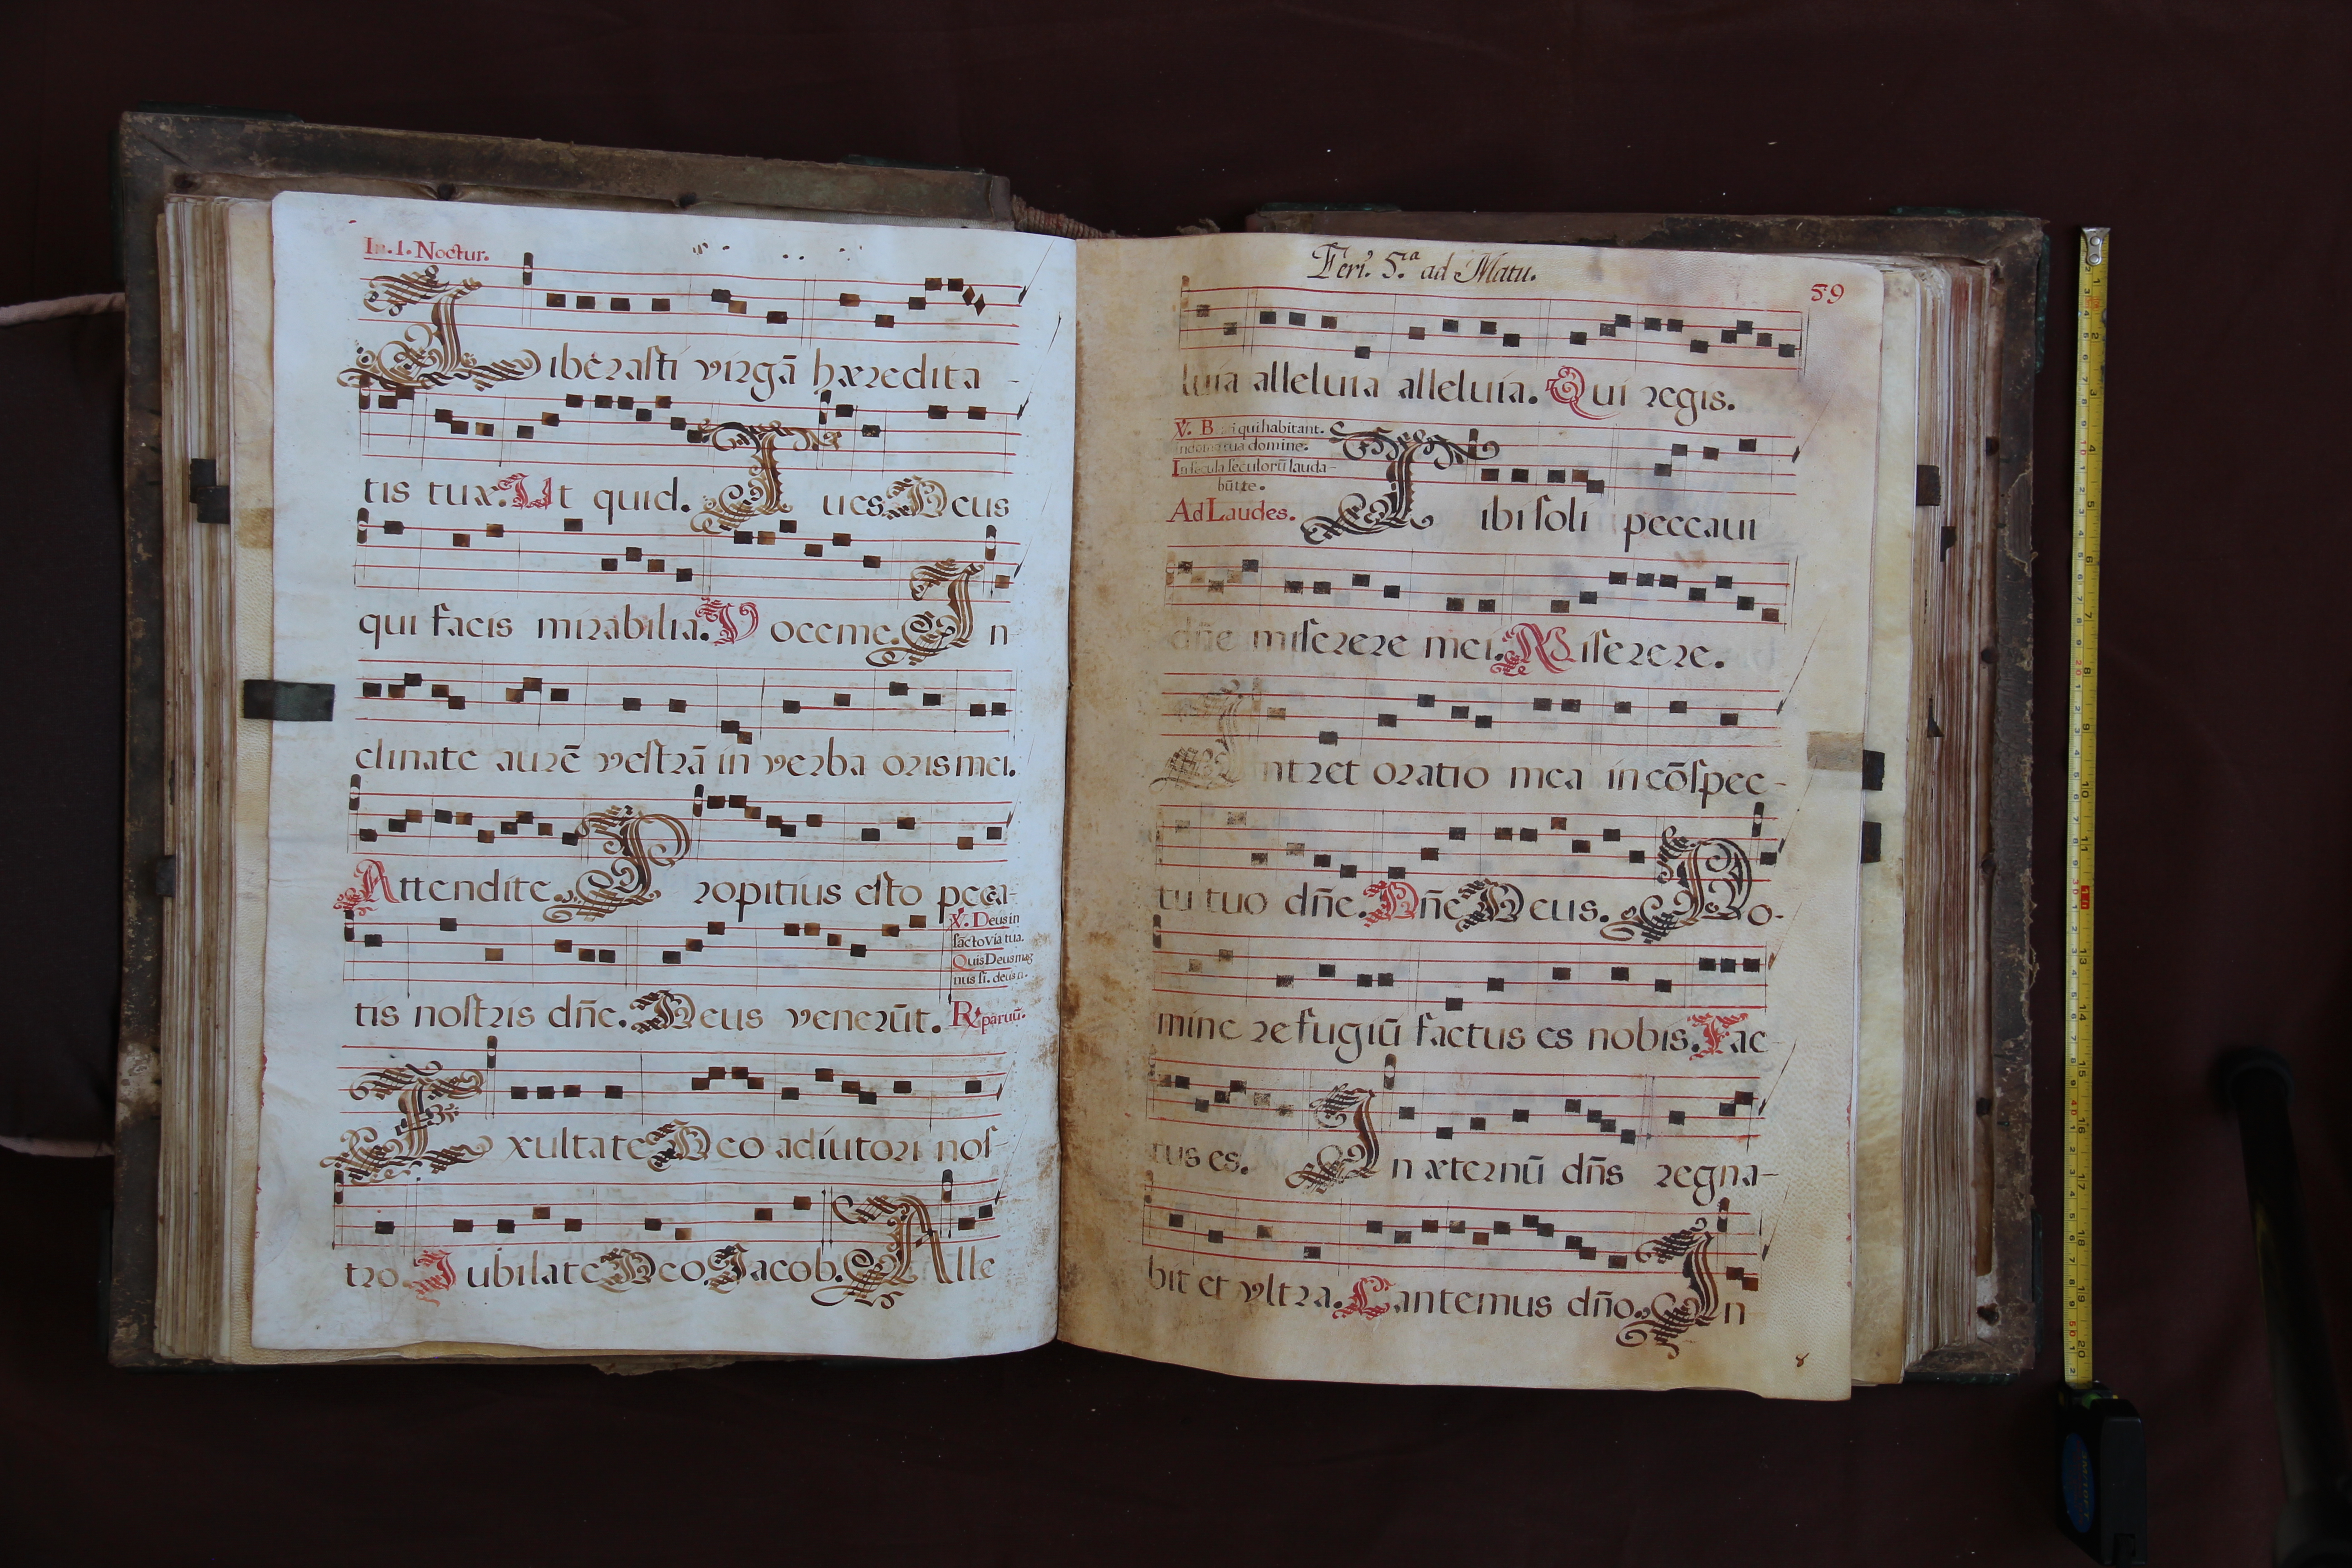 In. I. Noctur.
Liberasti virgã hæredita-
tis tuæ. Ut quid. Tu es Deus
qui facis mirabilia. Voce me. In
clinate aurē vestrā in verba oris mei.
Attendite. Propitius esto pecca-
tis nostris dñe. Deus venerūt.
℣. Deus in
sācto via tua.
Quis Deus mag
nus si. deus n.
℟. paruũ.
Exultate Deo adiutori nos-
tro. Jubilate Deo Jacob. Alle
Feri. 5.ta ad Matu.
59
luia alleluia alleluia. Qui regis.
℣. B qui habitant.
tua domine.
In secula seculorū lauda-
būt te.
Ad Laudes.
Tibi soli peccaui
dñe miserere mei. Miserere.
Intret oratio mea in cõspec-
tu tuo dñe. Dñe Deus. Do-
mine refugiũ factus es nobis. Fac-
tus es. In æternũ dñs regna-
bit et vltra. Cantemus dño. In
8